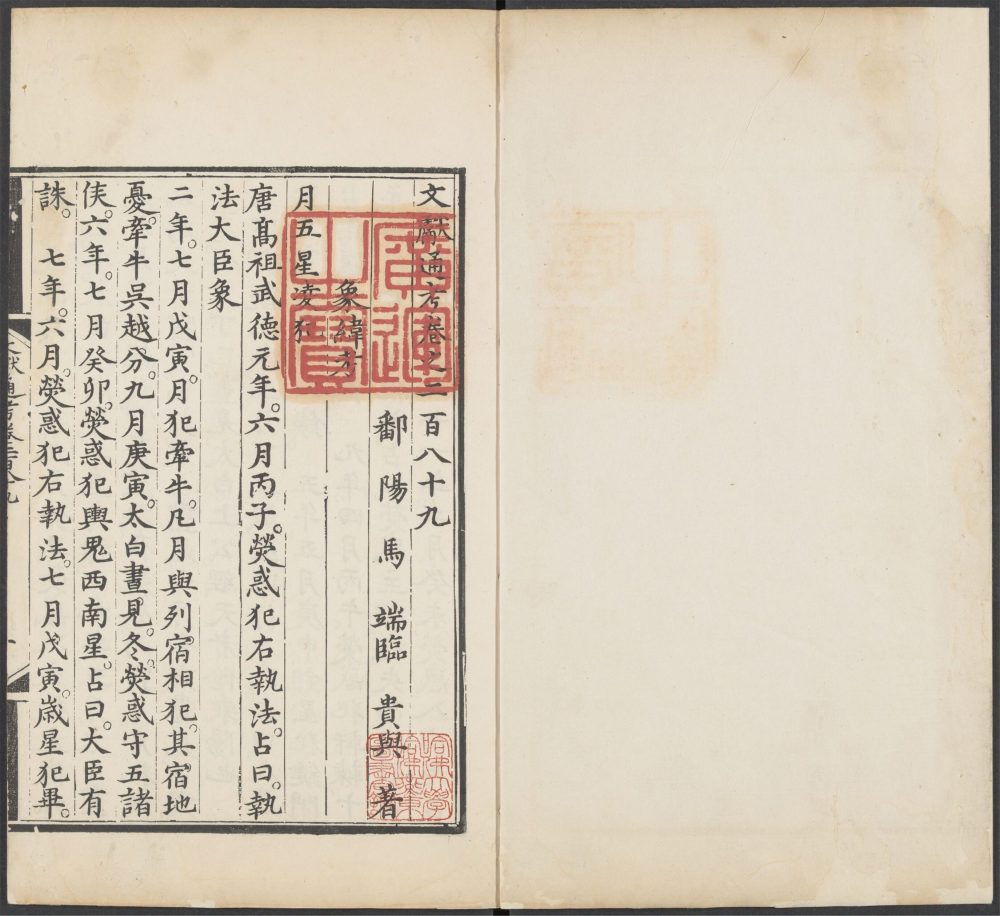 文獻通考卷之二百八十九
鄱陽馬端臨貴與著
象緯考
月五星凌犯
唐髙祖武德元年。六月丙子。熒惑犯右執法。占曰。執
法大臣象
二年。七月戊寅。月犯牽牛。凡月與列宿相犯。其宿地
憂。牽牛吳越分。九月庚寅。太白晝見。冬。熒惑守五諸
侯。六年。七月癸卯。熒惑犯輿鬼西南星。占曰。大臣有
誅。 七年。六月。熒惑犯右執法。七月戊寅。歲星犯畢。
文獻通考卷二百八十九
廣運之寶